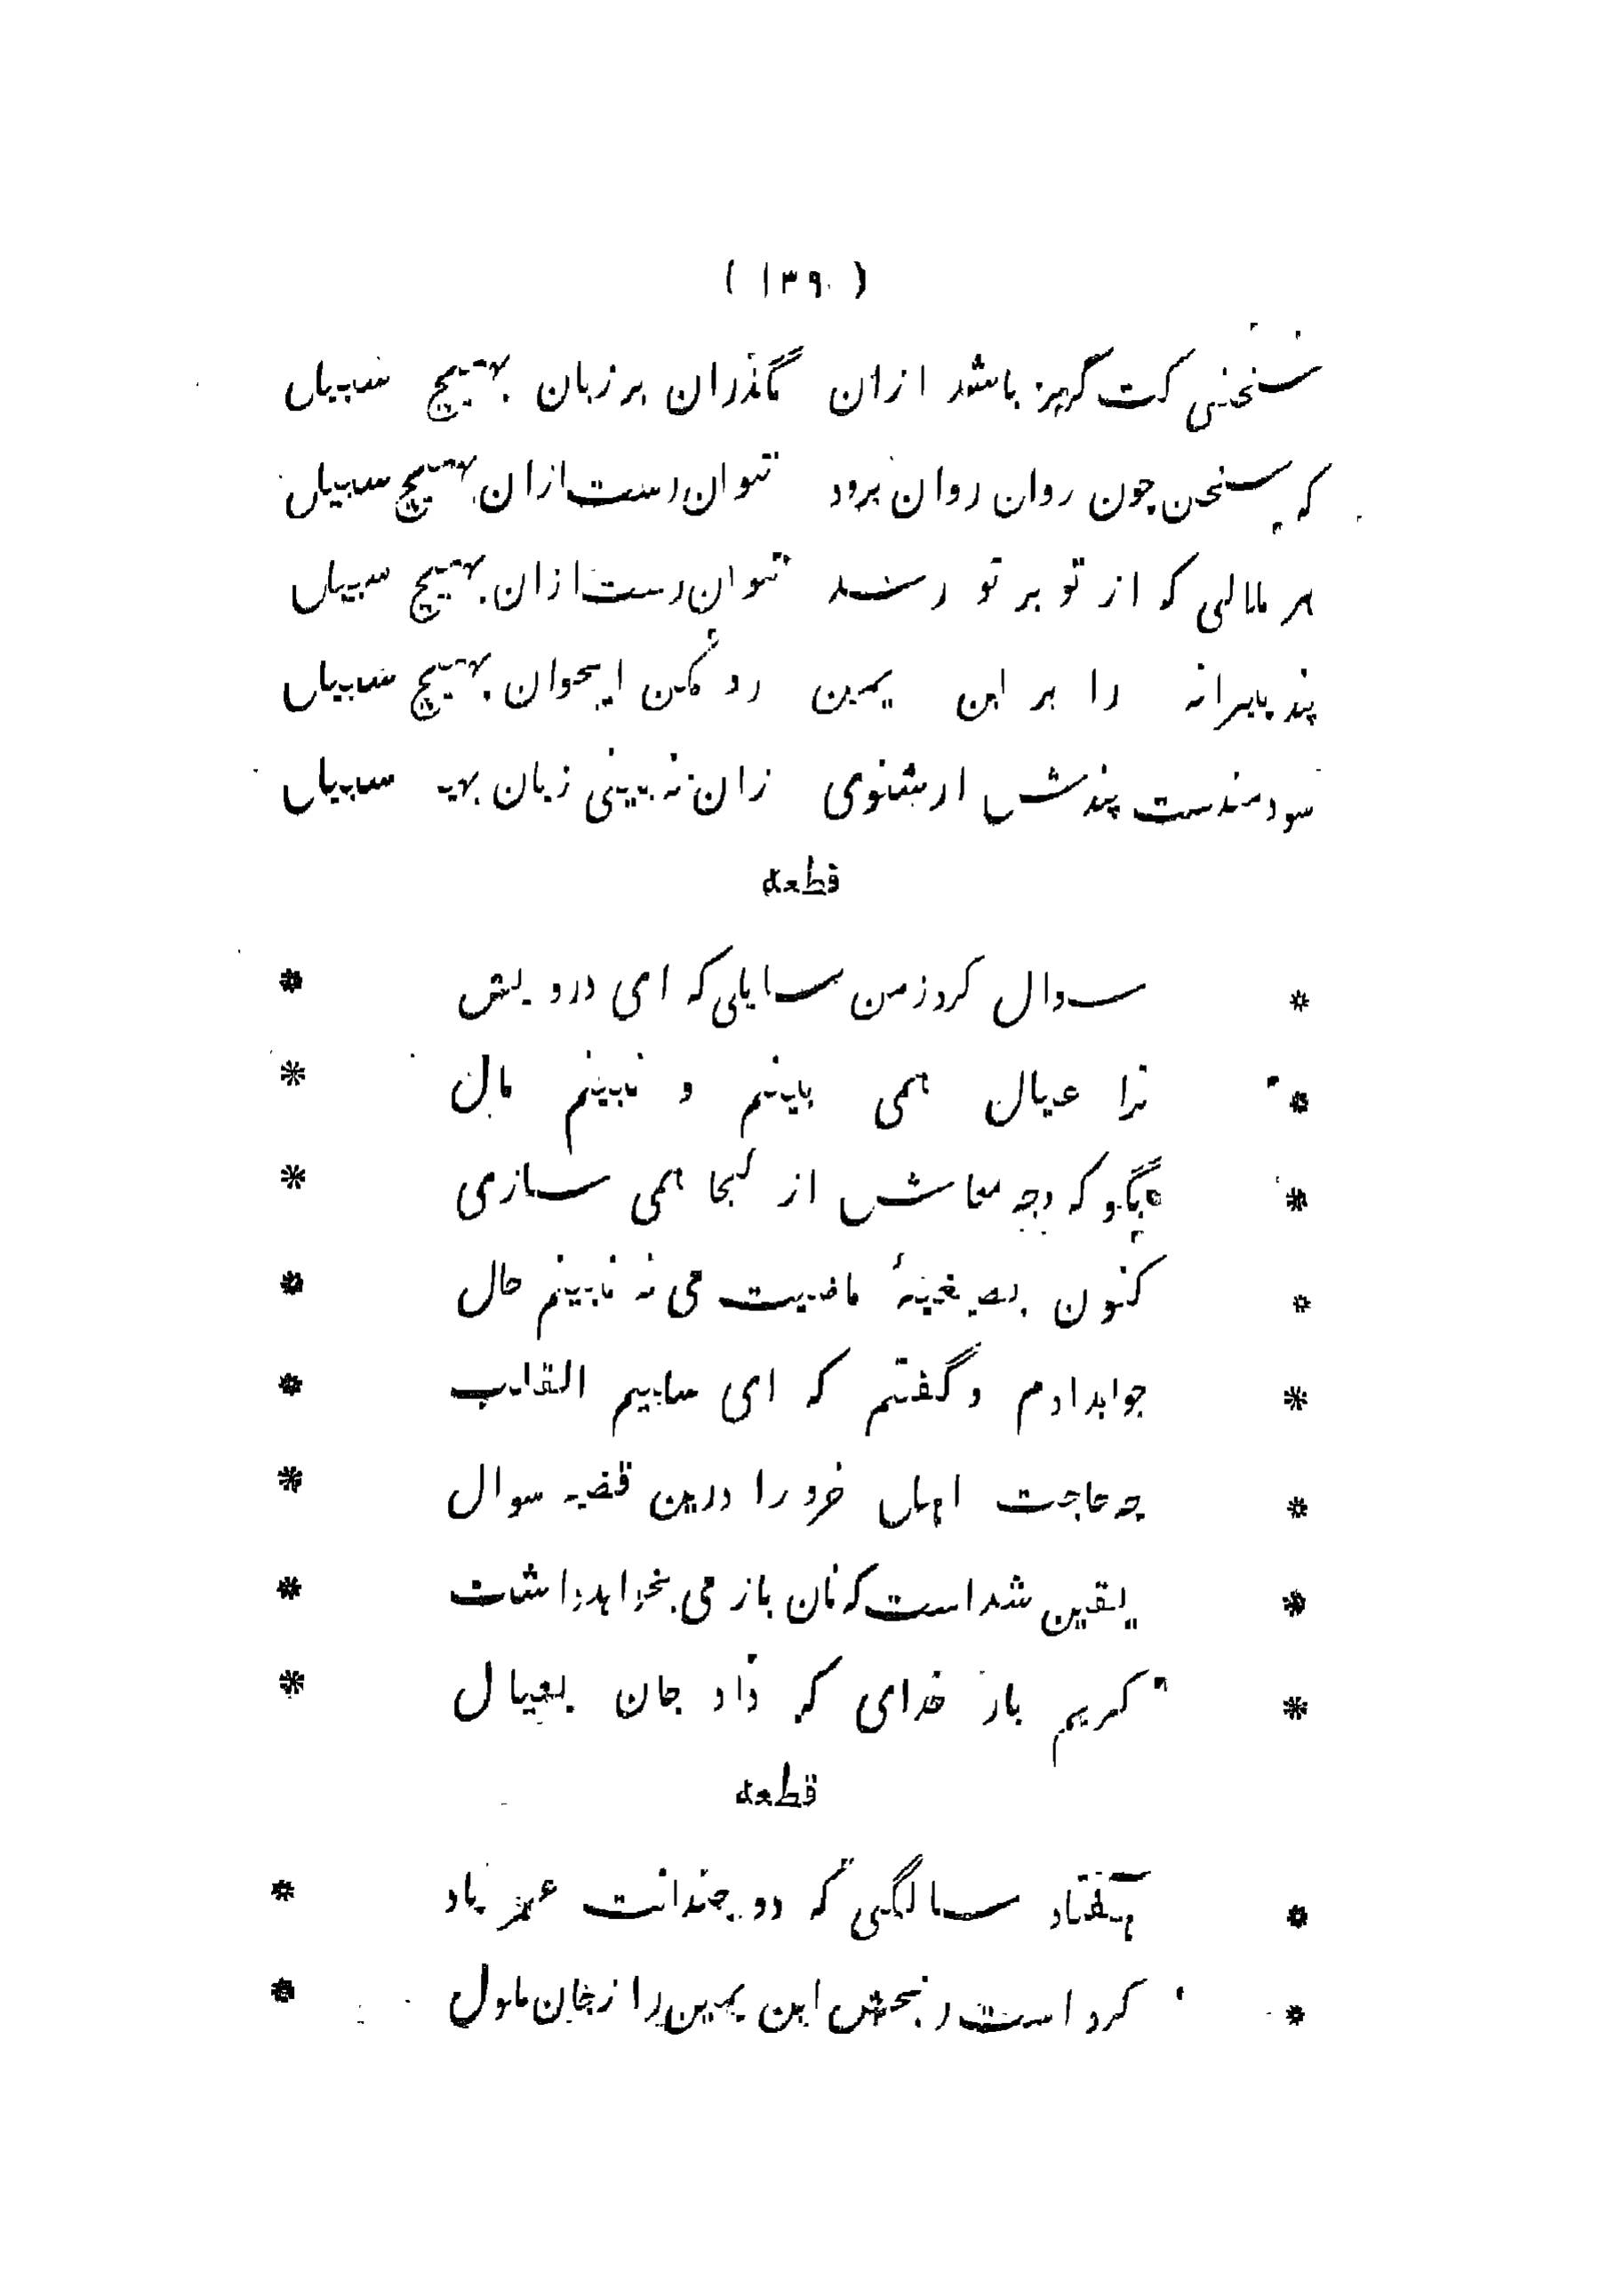 ( ۱۳۹ )
سخنی کت گریز باشد ازان مگذران بر زبان بهیچ سبیل
که سخن چون روان روان برود نتوان رست ازان بهیچ سبیل
هر ملالی که از تو بر تو رسد نتوان رست ازان بهیچ سبیل
پند پیرانه را بر ابن یمین رد مکن ایجوان بهیچ سبیل
سودمندست پندش ار بشنوی زان نه بینی زیان بهیچ سبیل
قطعه
* سوال کرد ز من سایلی که ای درویش *
* ترا عیال همی بینم و نبینم مال *
* بگو که وجه معاش از کجا همی سازی *
* کنون بصیغهٔ ماضیت می نه نبینم حال *
* جوابدادم و گفتم که ای سلیم القلب *
* چه حاجت اهل خرد را درین قضیه سوال *
* یقین شداست که نان باز می نخواهد داشت *
* کریم بار خدای که داد جان بعیال *
قطعه
* هفتاد سالگی که دو چندانت عمر باد *
* کرد است رنجش ابن یمین را ز جان ملول *